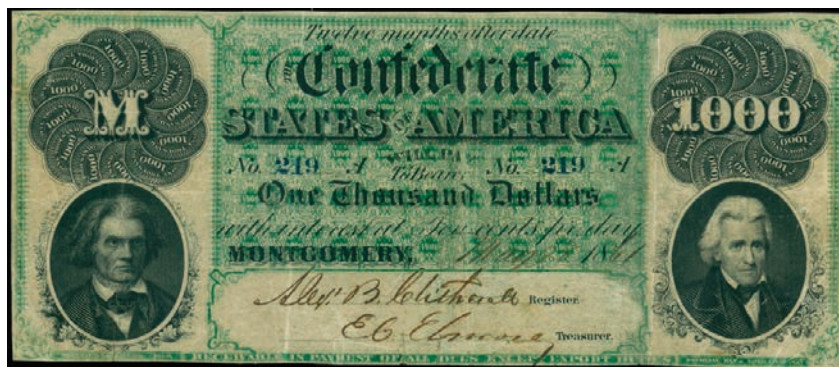 Twelve months after date
The
Confederate
STATES OF AMERICA
M
1000
No. 219 A
No. 219 A
WILL PAY
To Bearer
One Thousand Dollars
with interest at Ten cents per day
MONTGOMERY, May 1861
Alexr. B. Clitherall Register.
E. C. Elmore Treasurer.
RECEIVABLE IN PAYMENT OF ALL DUES EXCEPT EXPORT DUTIES